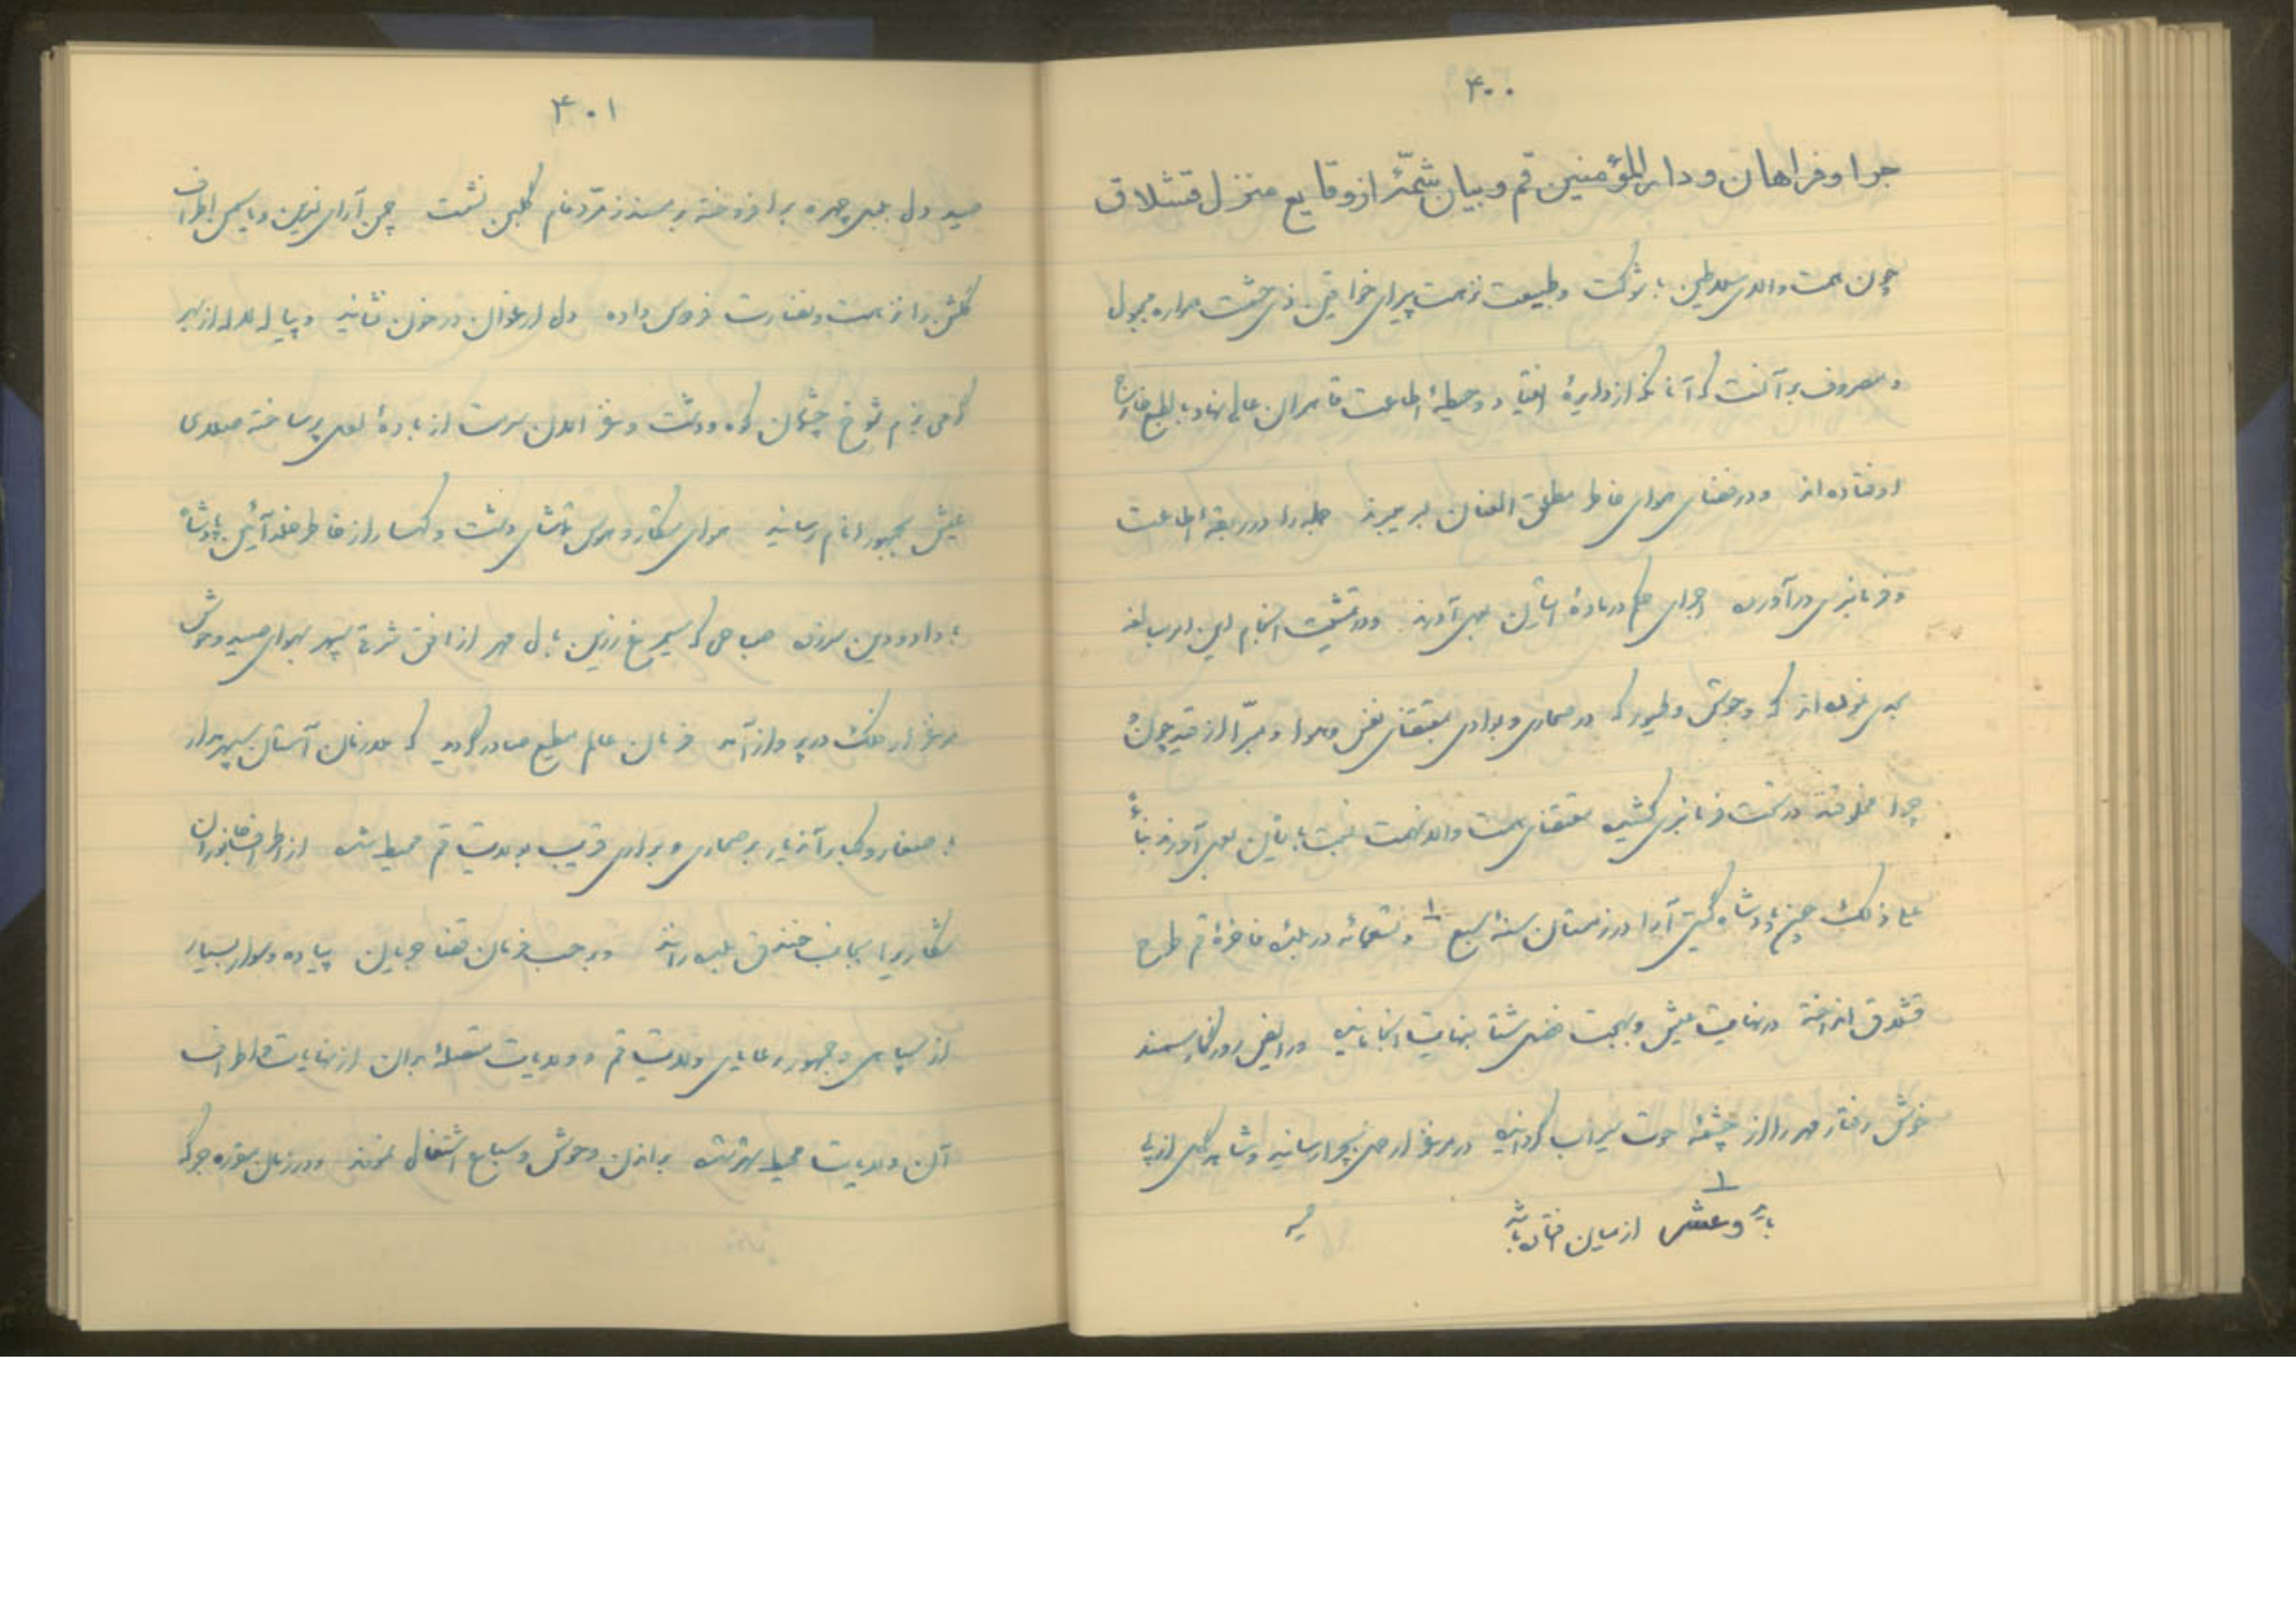 ۴۰۰
جرا و فراهان و دار المؤمنین قم و بیان شمّهٔ از وقایع منزل قشلاق
چون همت والای سلاطین با شوکت و طبیعت نزهت پیرای خواقین ذی حشمت همواره مجبول
و مصروف بر آنست که آنانکه از دایرهٔ انقیاد و حیطهٔ اطاعت قاهران عالی نهاد بالطبع خارج
اوفتاده‌اند و در فضای هوای خاطر مطلق العنان بسر میبرند جمله را در ربقهٔ اطاعت
و فرمانبری درآورده اجرای حکم در مادهٔ ایشان بعمل آورند و در تمشیت انجام این امر مبالغه
بعمل نموده‌اند که وحوش و طیور که در صحاری و بوادی بمقتضای نفس و هوا و مبرّا از قید چون و
چرا مخلوقند در تحت فرمانبری کشیده مقتضای همت والا نهمت نسبت بایشان بعمل آورند بناءً
علی ذلک چون پادشاه گیتی آرا در زمستان سنهٔ سبع ۱ و تسعمائه در بلدهٔ فاخرهٔ قم طرح
قشلاق انداخته در نهایت عیش و بهجت فصل شتا بنهایت انجامانید و رایض روزگار سمند
خوش رفتار مهر را از چشمهٔ حوت سیراب گردانیده در مرغزار حمل بچرا رسانید و شاهد گل از پی
۱
باید و عشر از میان افتاده باشد
صید
۴۰۱
صید دل بلبل چهره برافروخته بر مسند زمردفام گلبن نشست چمن آرای نسرین و یاسمن اطراف
گلشن را نزهت و نضارت فردوس داده دل ارغوان در خون نشانید و پیاله لاله از بهر
گرمی بزم شوخ چشمان کوه و دشت و غزالان سرمست از بادهٔ لعل پر ساخته صلای
عیش بجمهور انام رسانید هوای شکار و هوس تماشای دشت و کهسار از خاطر خلد آئین پادشاه
با داد و دین سر زد صباحی که سیمرغ زرین بال مهر از افق شرقی سپهر بهوای صید وحوش
مرغزار فلک در پرواز آمد فرمان عالم مطیع صادر گردید که ملازمان آستان سپهر مدار
با صغار و کبار آندیار بر صحاری و براری قریب بولایت قم محیط شده از اطراف جانوران
شکاری را بجانب خندق بلده رانند و بر حسب فرمان قضا جریان پیاده و سوار بسیار
از سپاهی و جمهور رعایای ولایت قم و ولایات متصلهٔ بدان از نهایات و اطراف
آن ولایات محیط شده براندن وحوش و سباع اشتغال نمودند و در زمان مقرره جرگه